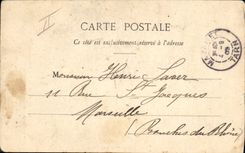 II
CARTE POSTALE
Ce côté est exclusivement réservé à l'adresse
Monsieur Henri
11 Rue St Jacques
Marseille
(Bouches du Rhône)